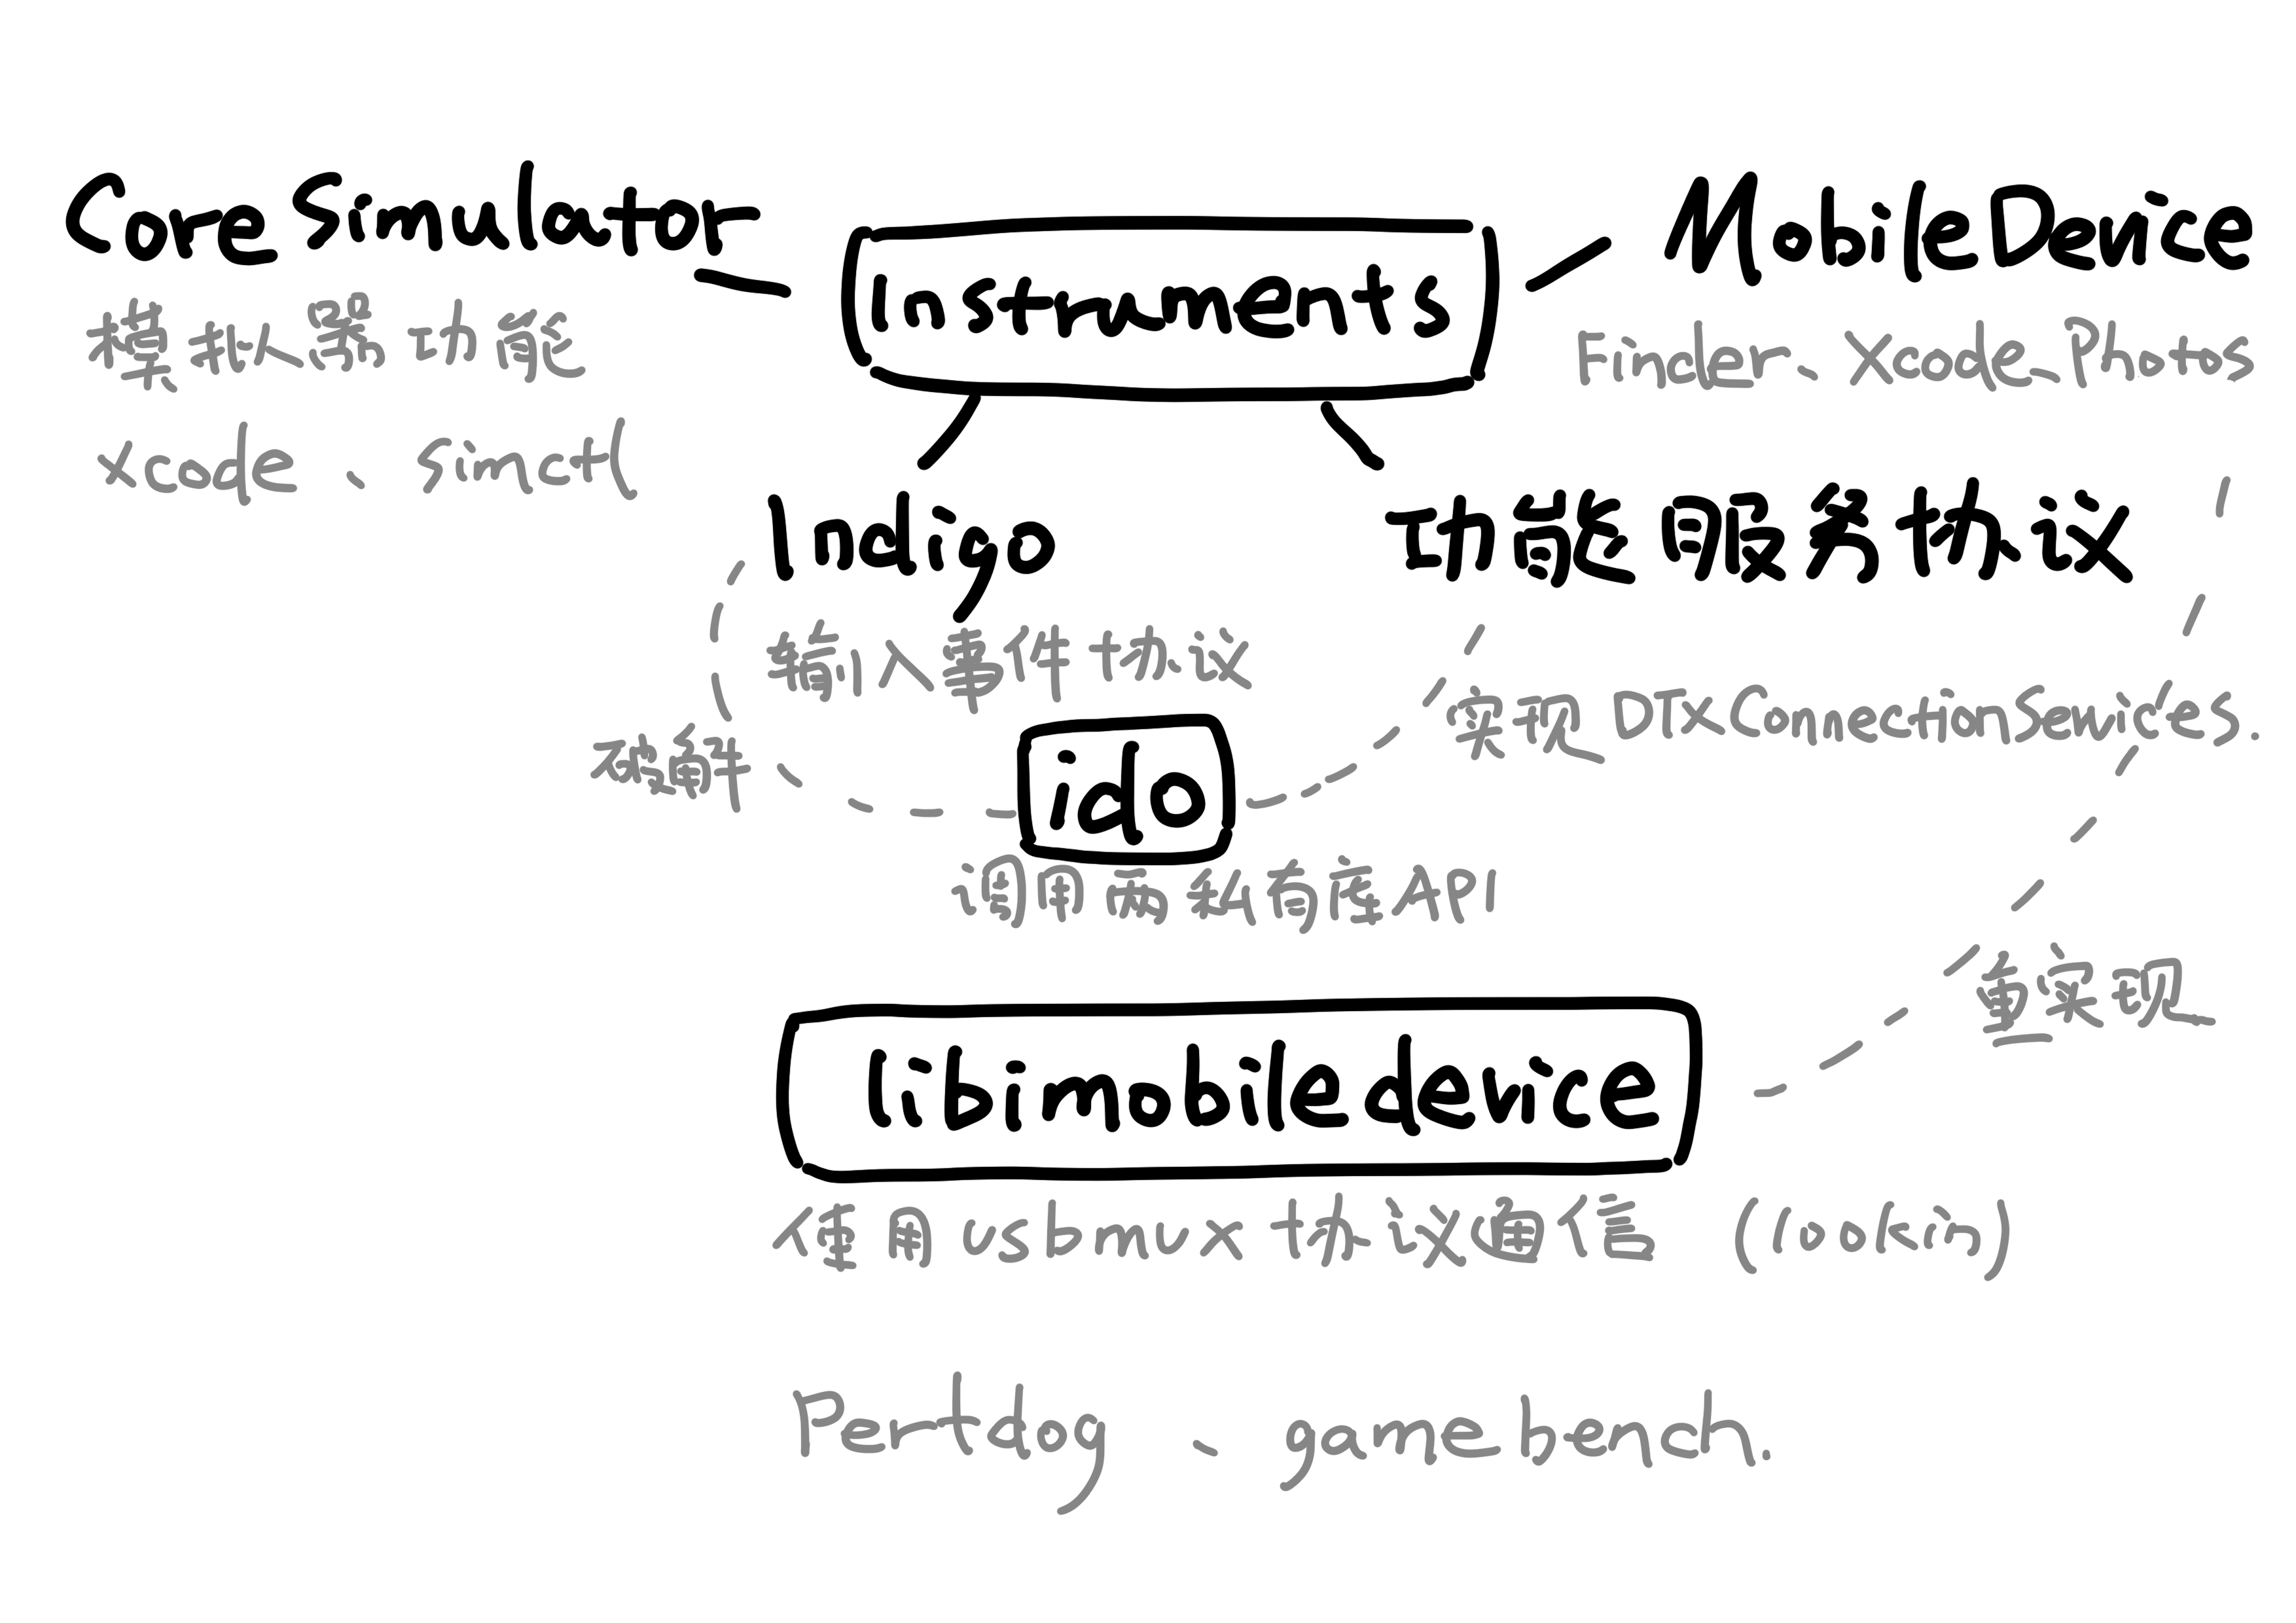 CoreSimulator
模拟器功能
Xcode、simctl
Instruments
MobileDevice
Finder、Xcode、Photos
Indigo
输入事件协议
功能服务协议
破解
ido
实现 DTXConnectionServices.
调用两私有库API
重实现
libimobiledevice
使用usbmux协议通信 (lookin)
Perfdog、gamebench.